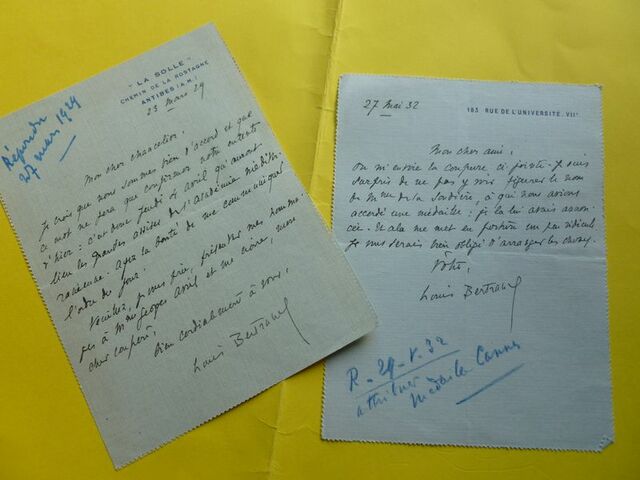 " LA SOLLE "
CHEMIN DE LA ROSTAGNE
ANTIBES (A.M.)
23 mars 29
Répondu
27 mars 1929
Mon cher chancelier,
Je crois que nous sommes bien d'accord et que
ce mot ne fera que confirmer notre entente
d'hier : c'est pour jeudi 4 avril qu'auront
lieu les grandes assises de l'Académie méditer-
ranéenne. Ayez la bonté de me communiquer
l'ordre du jour.
Veuillez, je vous prie, présenter mes homma-
ges à Mme Georges Avril et me croire, mon
cher confrère,
bien cordialement à vous,
Louis Bertrand
27 Mai 32
183 RUE DE L'UNIVERSITÉ. VIIe
Mon cher ami,
On m'envoie la coupure ci-jointe. Je suis
surpris de ne pas y voir figurer le nom
de Mme de la à qui nous avions
accordé une médaille : je la lui avais annon-
cée. Cela me met en posture un peu ridicule
Je vous serais bien obligé d'arranger les choses.
Vôtre,
Louis Bertrand
R - 29-5-32
attribuer
Médaille Cannes